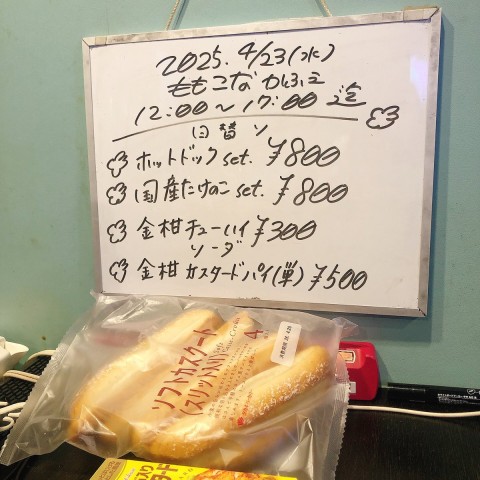 2025. 4/23(水)
ももこな かふぇ
12:00〜17:00 迄
日替り
ホットドック set. ¥800
国産たけのこ set. ¥800
金柑 チューハイ ¥300
ソーダ
金柑 カスタードパイ(単) ¥500
ソフトカスクート
(スリット入り)
4